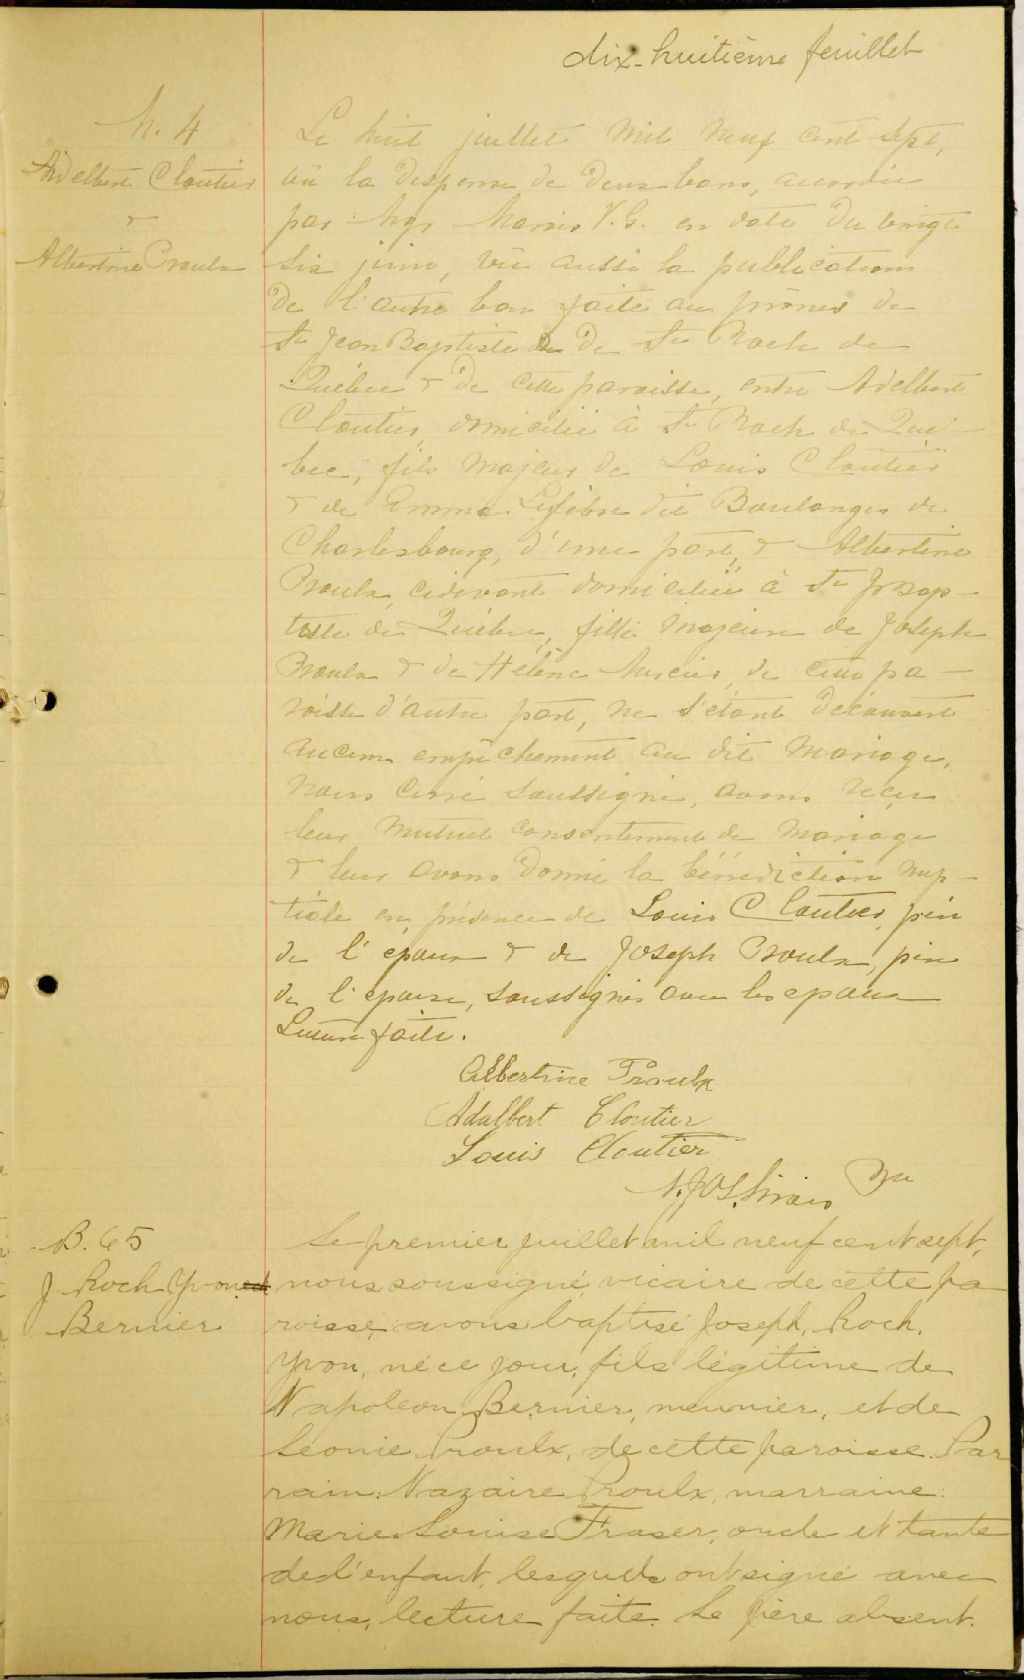 dix-huitième feuillet
M. 4
Adelbert Cloutier
&
Albertine Proulx
Le huit juillet mil neuf cent sept,
vû la dispense de deux bans, accordée
par Mgr Marois V.G. en date du vingt
six juin, vû aussi la publication
de l'autre ban faite au prônes de
St Jean Baptiste de St Roch de
Québec & de cette paroisse, entre Adelbert
Cloutier, domicilié à St Roch de Qué-
bec, fils majeur de Louis Cloutier
& de Emma Lefebvre dit Boulanger de
Charlesbourg, d'une part, & Albertine
Proulx, cidevant domiciliée à St J Bap-
tiste de Québec, fille majeure de Joseph
Proulx & de Hélène Mercier, de cette pa-
roisse d'autre part, ne s'étant découvert
aucun empêchement au dit mariage,
nous curé soussigné, avons reçu
leur mutuel consentement de mariage
& leur avons donné la bénédiction nup-
tiale en présence de Louis Cloutier, père
de l'époux & de Joseph Proulx, père
de l'épouse, soussignés avec les époux
Lecture faite.
Albertine Proulx
Adalbert Cloutier
Louis Cloutier
N. Jos. Sirois Ptre
B. 65
J. Roch Yvon
Bernier
Le premier juillet mil neuf cent sept,
nous soussigné, vicaire de cette pa
roisse, avons baptisé Joseph, Roch,
Yvon, né ce jour, fils légitime de
Napoléon Bernier, meunier, et de
Léonie Proulx, de cette paroisse. Par
rain: Nazaire Proulx, marraine:
Marie Louise Fraser, oncle et tante
de l'enfant, lesquels ont signé avec
nous, lecture faite. Le père absent.